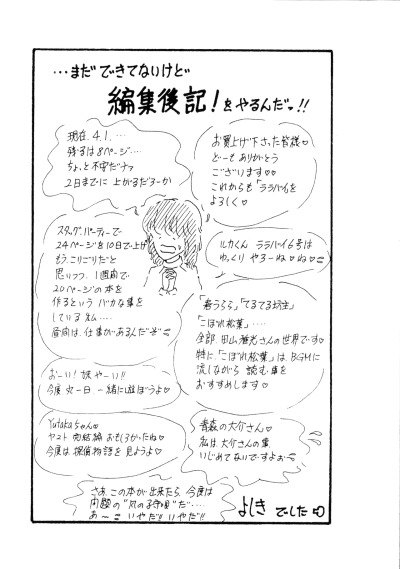 …まだできてないけど
編集後記！をやるんだー!!
現在、4.1.…
残るは8ページ…
ちょっと不安だナァ
2日までに上がるだろーか
お買上げ下さった皆様♡
どーもありがとう
ございます♡♡
これからも「ララバイ」を
よろしく♡
スタッグ・パーティーで
24ページを10日で上げ
もう、こりごりだと
思いつつ、1週間で
20ページの本を
作るという バカな事を
している私……
昼間は、仕事があるんだぞ
ルカくん ララバイ6号は
ゆっくり やろーね♡ね♡
「春うらら」「てるてる坊主」
「こぼれ松葉」……
全部、田山雅充さんの世界です♡
特に、「こぼれ松葉」は、BGMに
流しながら 読む事を
おすすめします♡
おーい！妖やーい!!
今度 丸一日 一緒に遊ぼうよ♡
Yutakaちゃん♡
ヤマト 完結編 おもしろかったね♡
今度は 探偵物語を 見ようよ♡
青森の大介さん♡
私は、大介さんの事
いじめてないですよぉ
さあ、この本が出来たら、今度は
問題の“風の子守唄”だ……
あ〜 いやだ!! いやだ!!
よしき でした